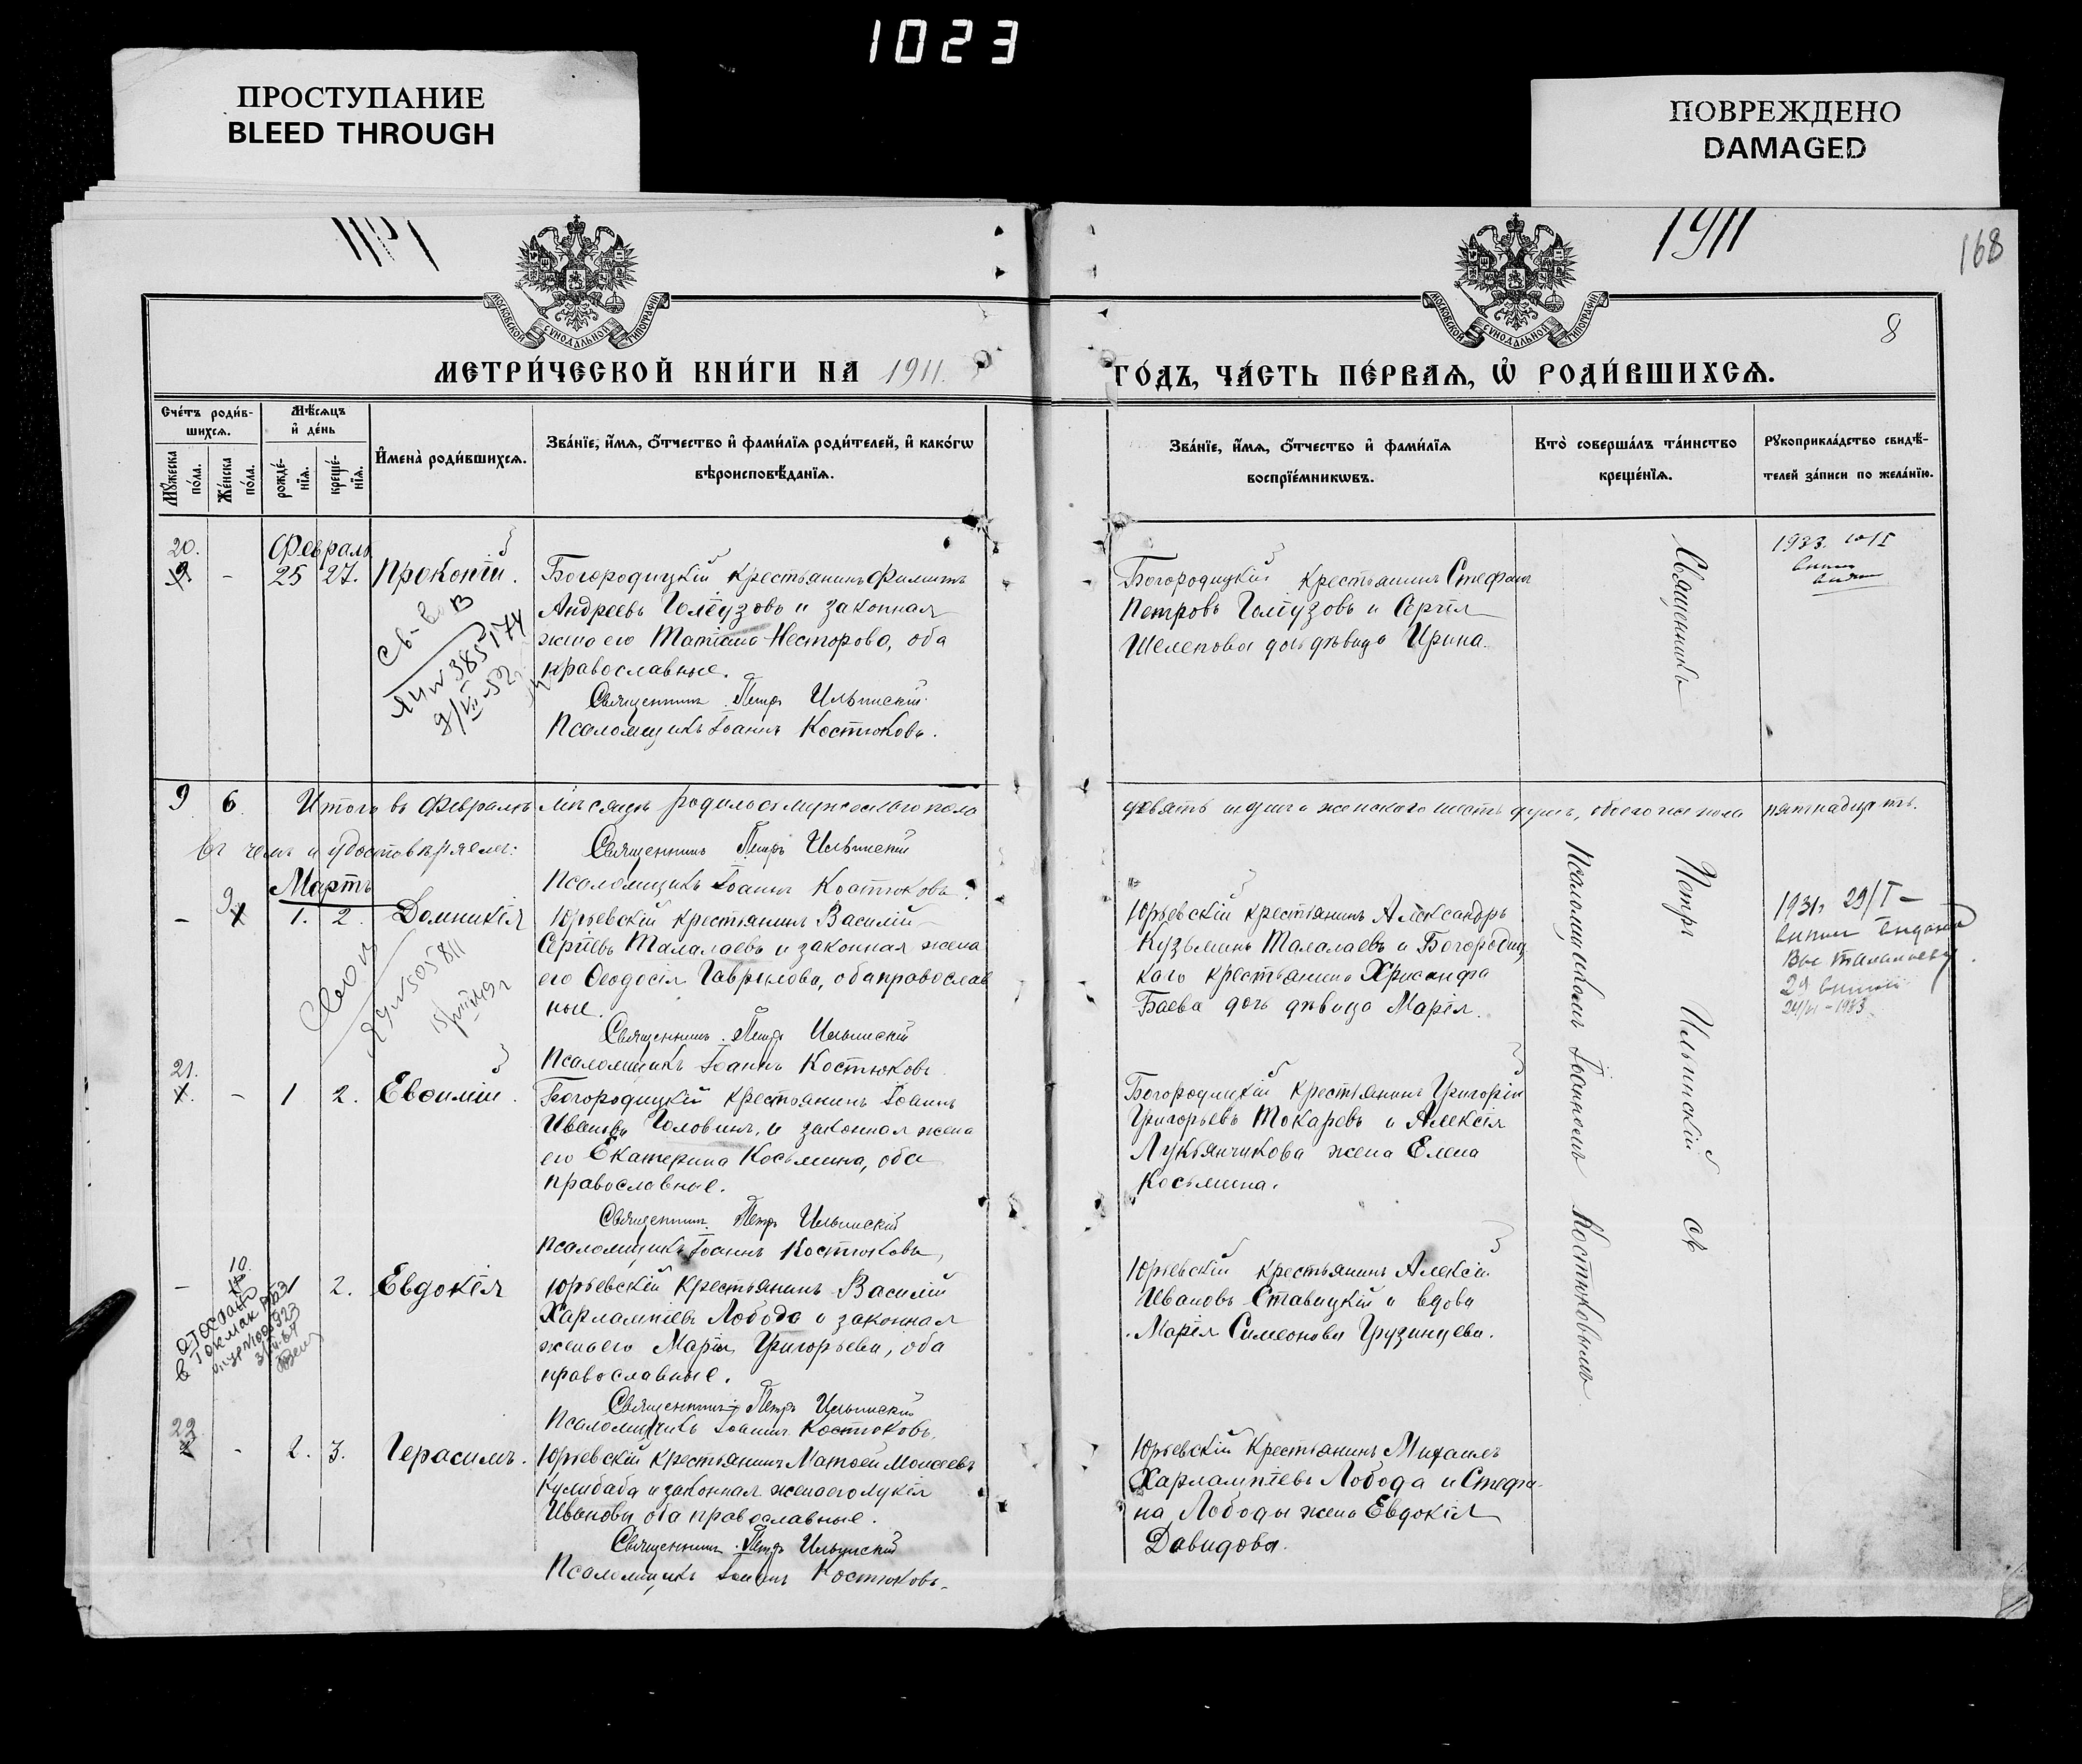 1023
ПРОСТУПАНИЕ
BLEED THROUGH
ПОВРЕЖДЕНО
DAMAGED
1911
168
МОСКОВСКОЙ СѴНОДАЛЬНОЙ ТИПОГРАФІИ
МОСКОВСКОЙ СѴНОДАЛЬНОЙ ТИПОГРАФІИ
8
МЕТРИ́ЧЕСКОЙ КНИ́ГИ НА 1911.
ГО́ДЪ, ЧА́СТЬ ПЕ́РВАѦ, Ѡ҆ РОДИ́ВШИХСѦ.
Сче́тъ роди́в-
шихсѧ.
Мѣ́сѧцъ
и҆ де́нь
Мꙋ́жеска
по́ла.
Же́нска
по́ла.
рожде́-
нїѧ.
креще́-
нїѧ.
И҆мена̀ роди́вшихсѧ.
Зва́нїе, и҆́мѧ, ѻ҆́тчество и҆ фами́лїѧ роди́телей, и҆ како́гѡ
вѣроисповѣ́данїѧ.
Зва́нїе, и҆́мѧ, ѻ҆́тчество и҆ фами́лїѧ
воспрїе́мникѡвъ.
Кто̀ соверша́лъ та́инство
креще́нїѧ.
Рꙋкоприкла́дство свидѣ́-
телей за́писи по жела́нїю.
20.
Февраль
- 25 27. Прокопій.
Богородицкій крестьянинъ Филиппъ
Андреевъ Голеузовъ и законная
жена его Татіана Несторова, оба
православные.
Священникъ Петръ Ильинскій
Псаломщикъ Іоаннъ Костюковъ.
Св-во
385174
Богородицкій крестьянинъ Стефанъ
Петровъ и Сергія
Шелепова дочь дѣвица Ирина.
1933
9 6. Итого въ Февралѣ мѣсяцѣ родилось мужескаго пола
девять и женскаго шесть душъ, обоего же пола пятнадцать.
въ чемъ и удостовѣряемъ:
Священникъ Петръ Ильинскій
Псаломщикъ Іоаннъ Костюковъ.
Мартъ
- 9. 1. 2. Домникія
Юрьевскій крестьянинъ Василій
Сергіевъ Талалаевъ и законная жена
его Ѳеодосія Гаврилова, оба православ
ные.
Священникъ Петръ Ильинскій
Псаломщикъ Іоаннъ Костюковъ
505811
Юрьевскій крестьянинъ Александръ
Кузьминъ Талалаевъ и Богородиц
каго крестьянина Хрисанфа
Баева дочь дѣвица Марія.
1931. 29/I -
21.
- 1 2. Евѳимій.
Богородицкій крестьянинъ Іоаннъ
Ивановъ Головинъ, и законная жена
его Екатерина Косьмина, оба
православные.
Священникъ Петръ Ильинскій
Псаломщикъ Іоаннъ Костюковъ,
Богородицкій крестьянинъ Григорій
Григорьевъ Токаревъ и Алексія
Лукьянчикова жена Елена
Косьмина.
- 10. 1 2. Евдокія
Юрьевскій крестьянинъ Василій
Харлампіевъ Лобода и законная
жена его Марія Григорьева, оба
православные.
Священникъ Петръ Ильинскій
Псаломщикъ Іоаннъ Костюковъ.
Юрьевскій крестьянинъ Алексій
Ивановъ Ставицкій и вдова
Марія Симеонова Грузинцева.
22
- 2. 3. Герасимъ.
Юрьевскій крестьянинъ Матѳей Моисеевъ
Кулибаба и законная жена его Лукія
Иванова, оба православные.
Священникъ Петръ Ильинскій
Псаломщикъ Іоаннъ Костюковъ.
Юрьевскій крестьянинъ Михаилъ
Харлампіевъ Лобода и Стефа-
на Лободы жена Евдокія
Давидова.
Священникъ Петръ Ильинскій съ
Псаломщикомъ Іоанномъ Костюковымъ